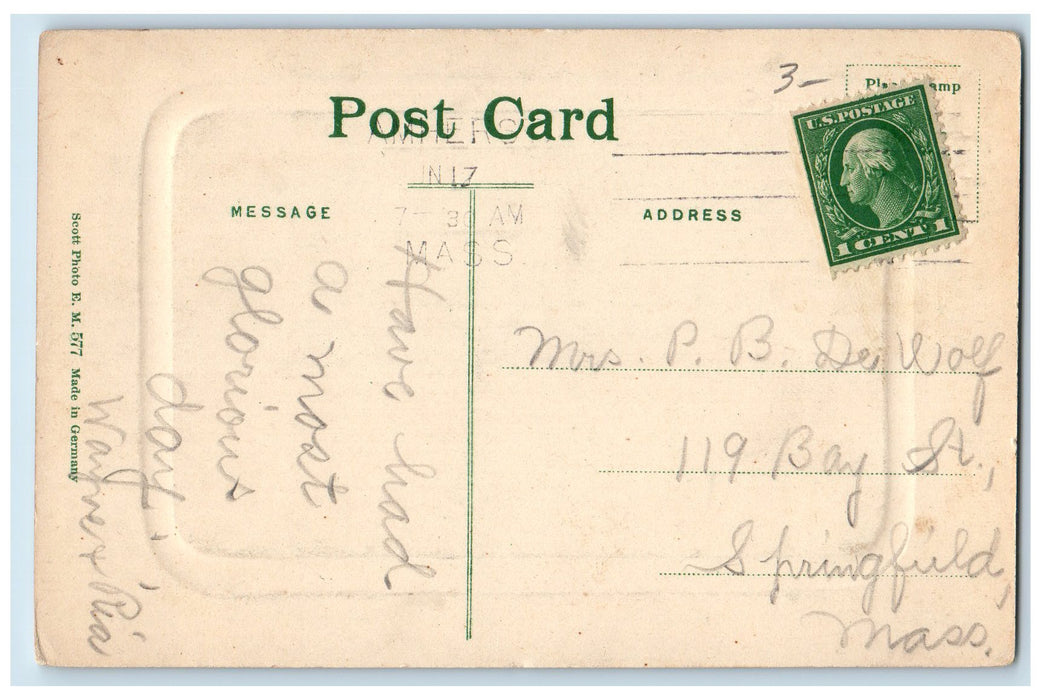 Post Card
3-
U.S. POSTAGE
1 CENT 1
N 17
7- 30 AM
MASS.
MESSAGE
ADDRESS
Have had
a most
glorious
day.
Mrs. P. B. De Wolf
119 Bay St.,
Springfield,
Mass.
Scott Photo E. M. 577 Made in Germany